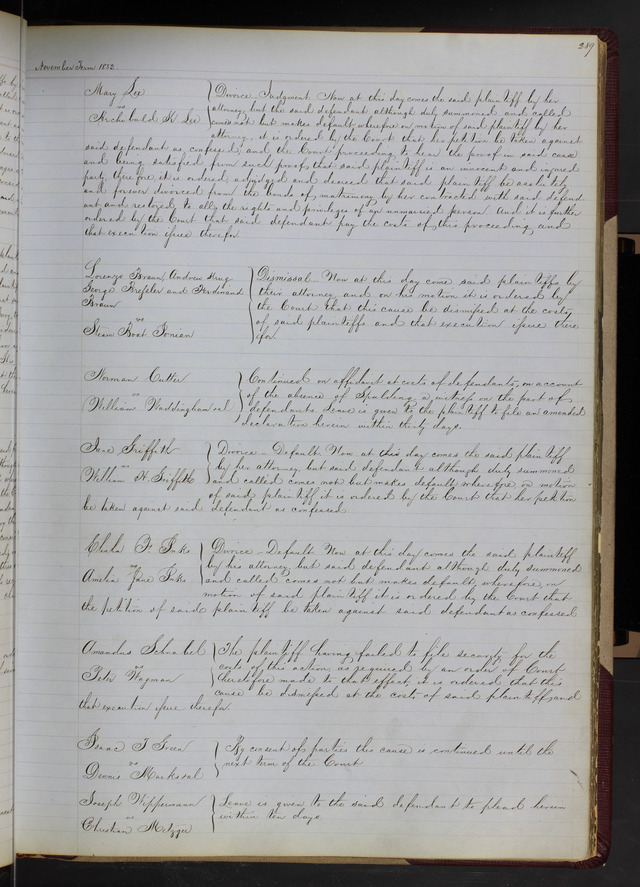 219
November Term 1852
Mary Lee
vs
Archibald H Lee
Divorce - Judgment Now at this day comes the said plaintiff by her
attorney but the said defendant although duly summoned and called
comes not but makes default, wherefore on motion of said plaintiff by her
attorney it is ordered by the Court that her petition be taken against
said defendant as confessed, and the Court proceeding to hear the proof in said case
and being satisfied from such proofs that said plaintiff is an innocent and injured
party therefore it is ordered adjudged and decreed that said plaintiff be absolutely
and forever divorced from the bonds of matrimony by her contracted with said defend
ant and restored to all the rights and privileges of an unmarried person And it is further
ordered by the Court that said defendant pay the costs of this proceeding and
that execution issue therefor
Lorenzo Braun, Andrew Krug
George Kressler and Ferdinand
Braun
vs
Steam Boat Ionian
Dismissal - Now at this day come said plaintiffs by
their attorney and on his motion it is ordered by
the Court that this cause be dismissed at the costs
of said plaintiffs and that execution issue there
for
Norman Cutter
vs
William Waddingham et al
Continued on affidavit at costs of defendants, on account
of the absence of Spalding a witness on the part of
defendants. Leave is given to the plaintiff to file an amended
declaration herein within thirty days.
Jane Griffith
vs
William H. Griffith
Divorce - Default Now at this day comes the said plaintiff
by her attorney but said defendant although duly summoned
and called comes not but makes default, wherefore on motion
of said plaintiff it is ordered by the Court that her petition
be taken against said defendant as confessed
vs
Amelia Jane
Divorce - Default Now at this day comes the said plaintiff
by his attorney but said defendant although duly summoned
and called comes not but makes default, wherefore, on
motion of said plaintiff it is ordered by the Court that
the petition of said plaintiff be taken against said defendant as confessed
Amandus Schnabel
vs
Peter Wagman
The plaintiff having failed to file security for the
costs of this action as required by an order of Court
heretofore made to that effect, it is ordered that this
cause be dismissed at the costs of said plaintiff, and
that execution issue therefor.
Isaac T Green
vs
Dennis Marks et al
By consent of parties this cause is continued until the
next term of the Court
Joseph Wippermann
vs
Christian Metzger
Leave is given to the said defendant to plead herein
within ten days